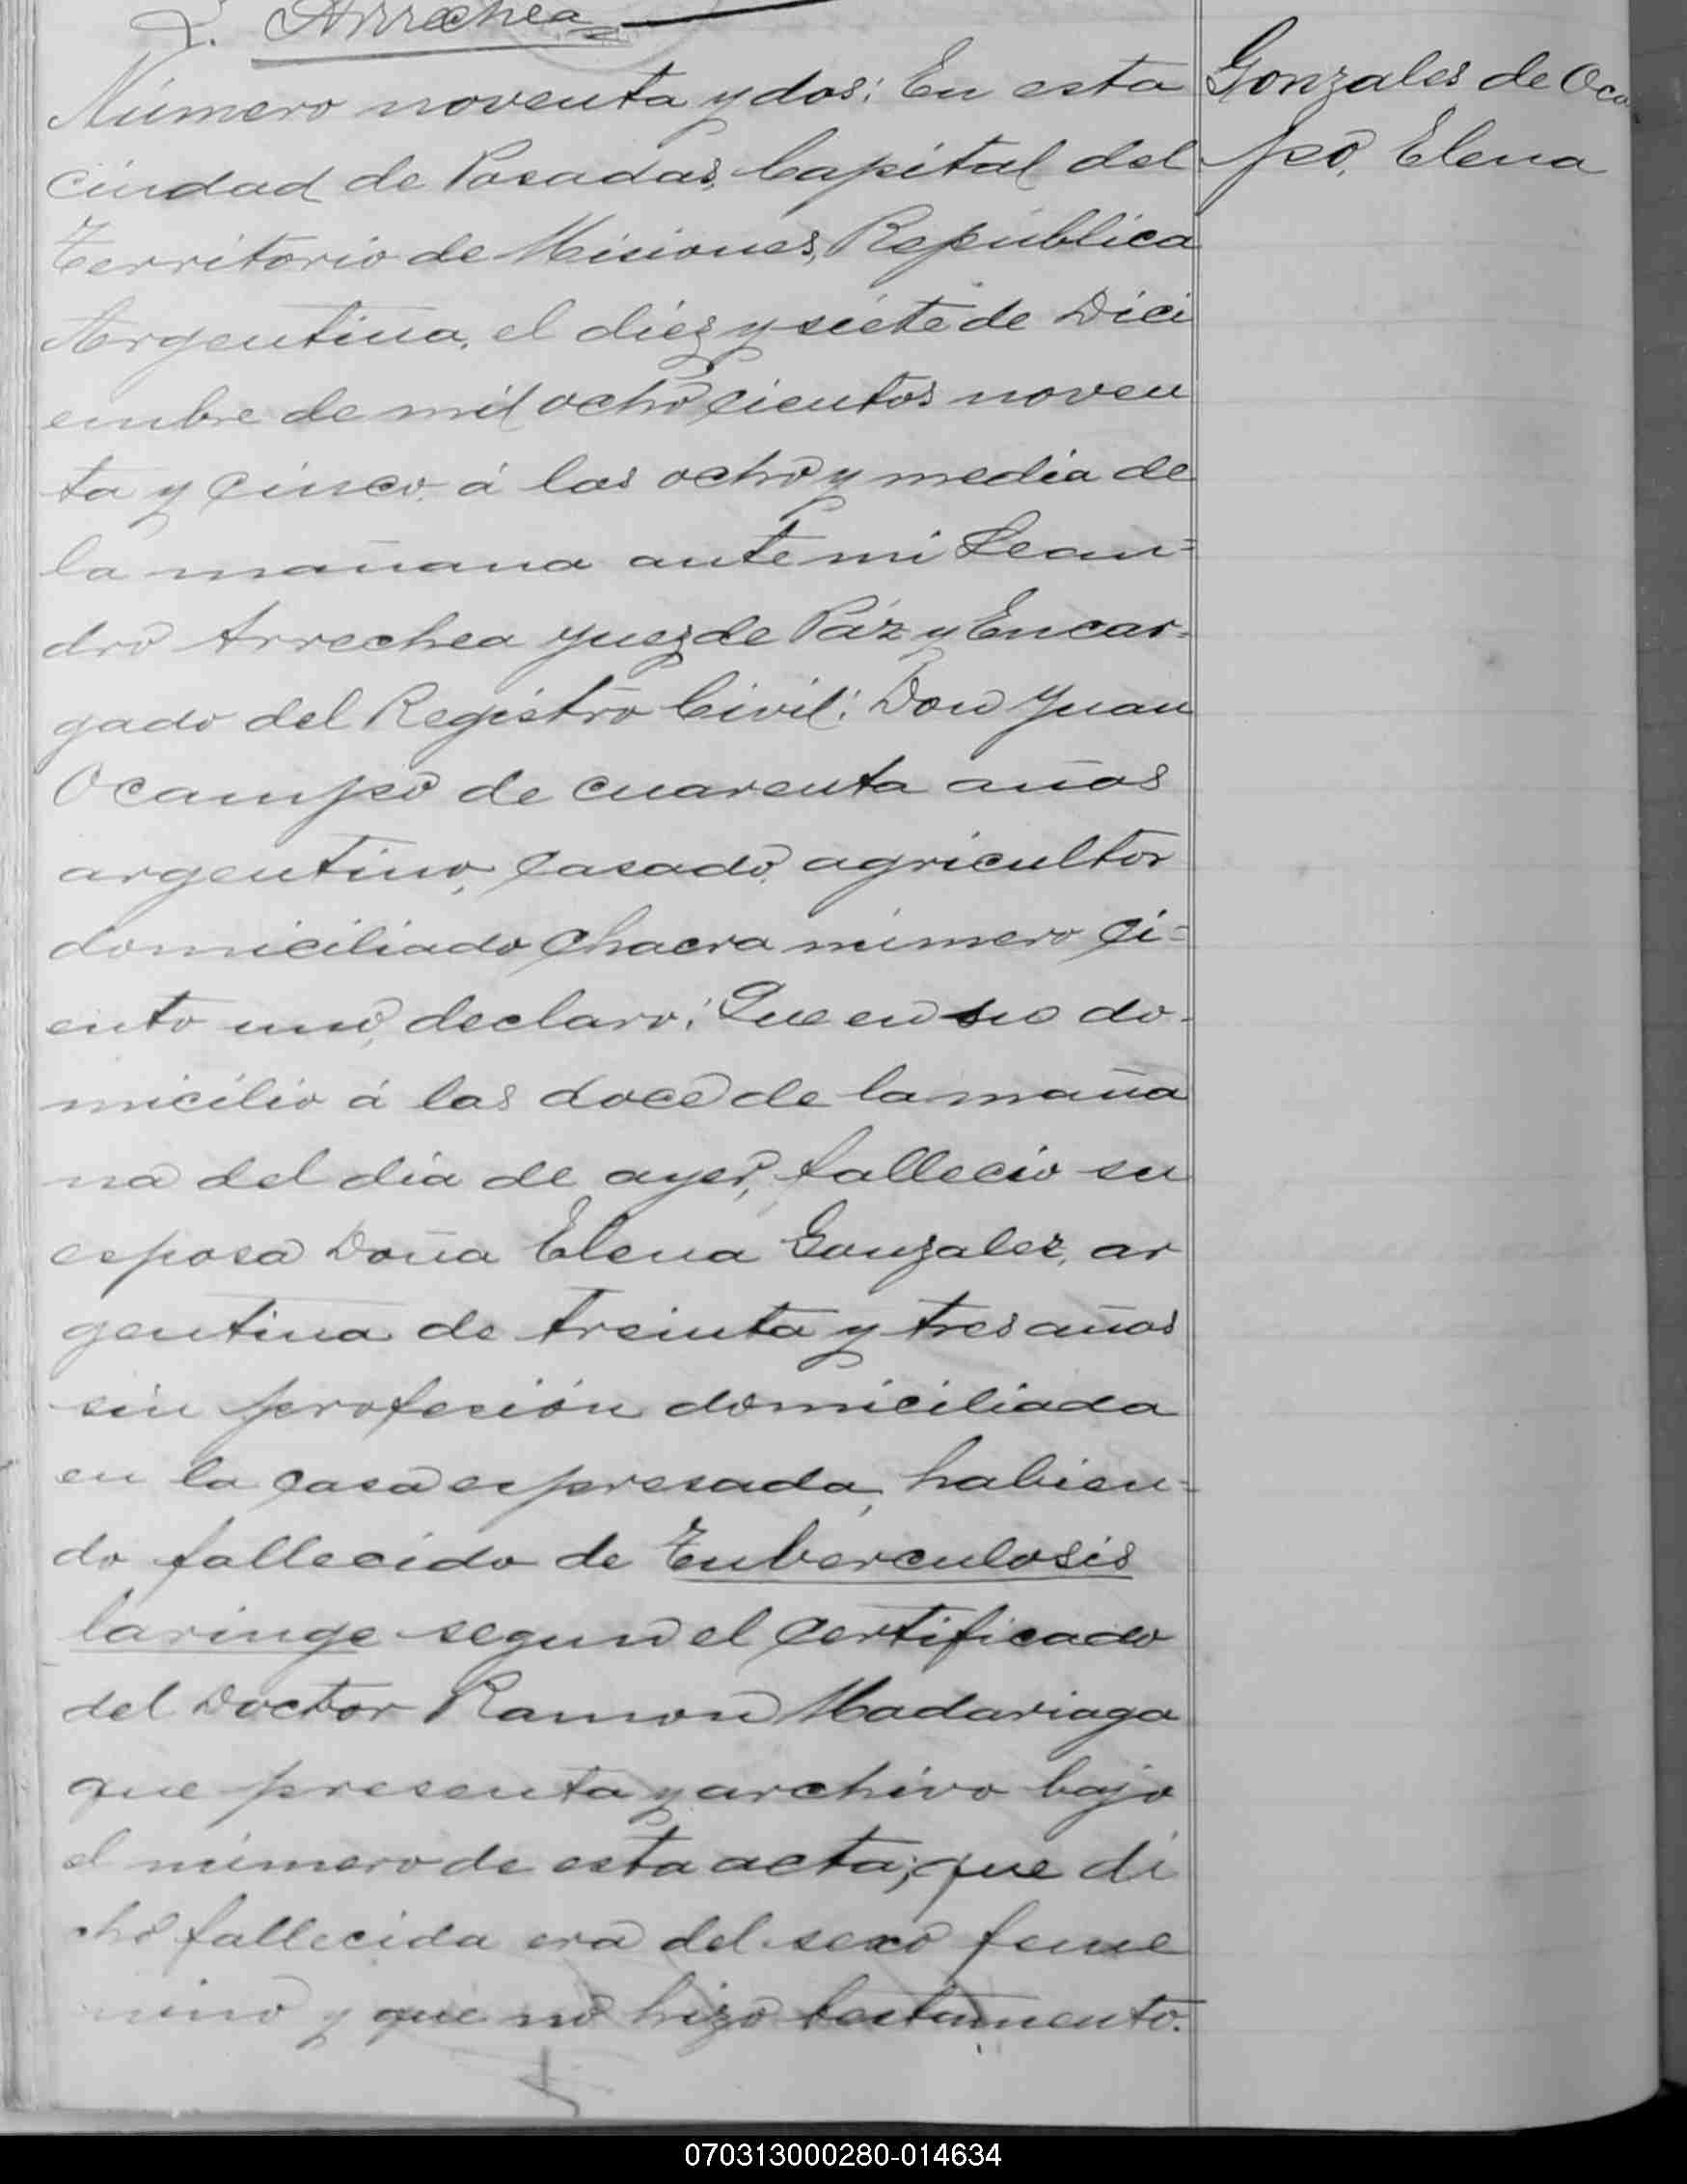 L. Arrechea
Número noventa y dos: En esta
ciudad de Posadas, Capital del
Territorio de Misiones, República
Argentina, el diez y siete de Dici
embre de mil ocho cientos noven
ta y cinco, á las ocho y media de
la mañana ante mi Lean=
dro Arrechea Juez de Páz y Encar=
gado del Registro Civil: Don Juan
Ocampo de cuarenta años
argentino, casado, agricultor
domiciliado chacra número ci=
ento uno, declaro: Que en su do-
micilio á las doce de la maña
na del día de ayer, fallecio su
esposa Doña Elena Gonzalez, ar
gentina de treinta y tres años
sin profesión domiciliada
en la casa espresada, habien=
do fallecido de Tuberculosis
laringe segun el certificado
del Doctor Ramon Madariaga
que presenta y archivo bajo
el número de esta acta; que di
cho fallecida era del sexo feme
nino y que no hizo testamento.
Gonzales de Oca
po, Elena
070313000280-014634